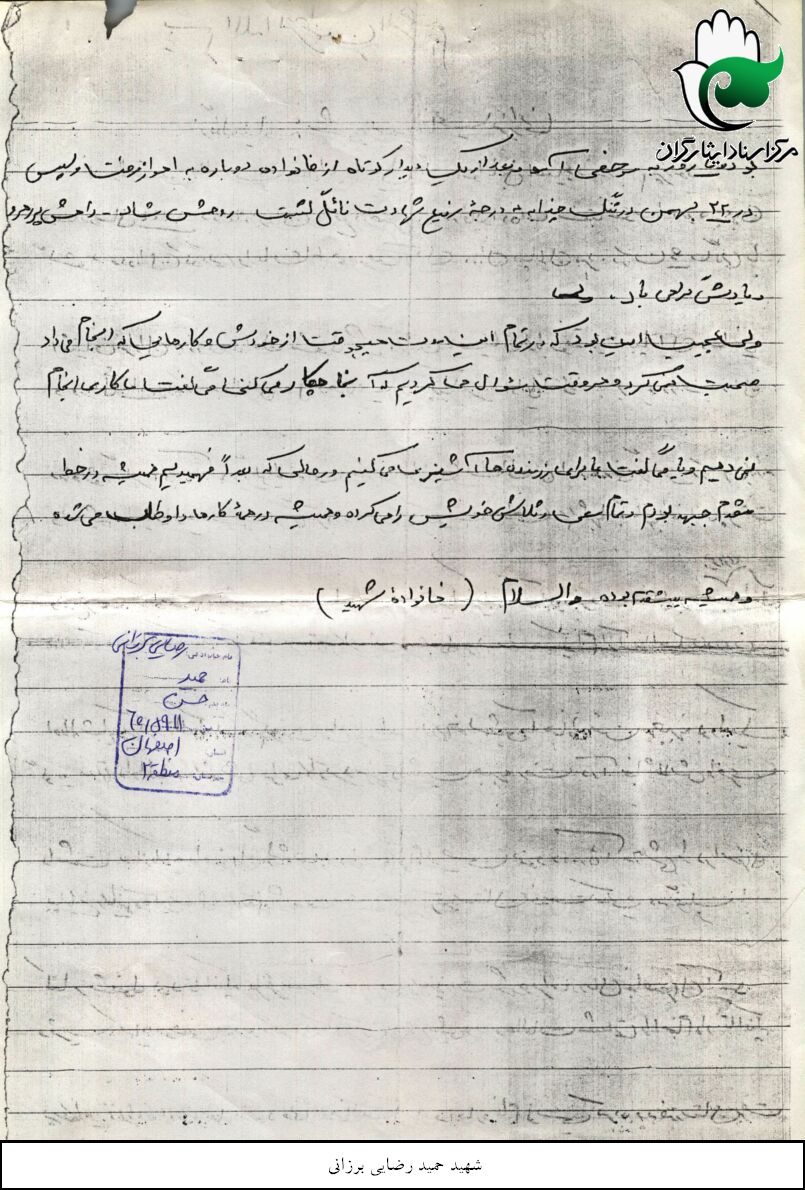 مرکز اسناد ایثارگران
دو روز به مرخصی آمد و بعد از یک دیدار کوتاه از خانواده دوباره به اهواز رفت و سپس
در ۲۲ بهمن در تنگ چزابه به درجه رفیع شهادت نائل گشت روحش شاد - راهش پر رهرو
و یادش گرامی باد.
ولی عجیب این بود که در تمام این مدت هیچوقت از خودش و کارهایی که انجام می داد
صحبت نمی کرد و هر وقت سؤال می کردیم که آنجا چکار می کنی می گفت ما کاری انجام
نمی دهیم و یا می گفت ما برای رزمنده ها آشپزی می کنیم در حالی که بعداً فهمیدیم همیشه در خط
مقدم جبهه بوده و تمام سعی و تلاش خویش را می کرده و همیشه در همه کارها داوطلب می شده
و همیشه پیشقدم بوده والسلام ( خانواده شهید )
نام خانوادگی رضایی برزانی
نام حمید
نام پدر حسن
اصفهان
منطقه ۲
شهید حمید رضایی برزانی